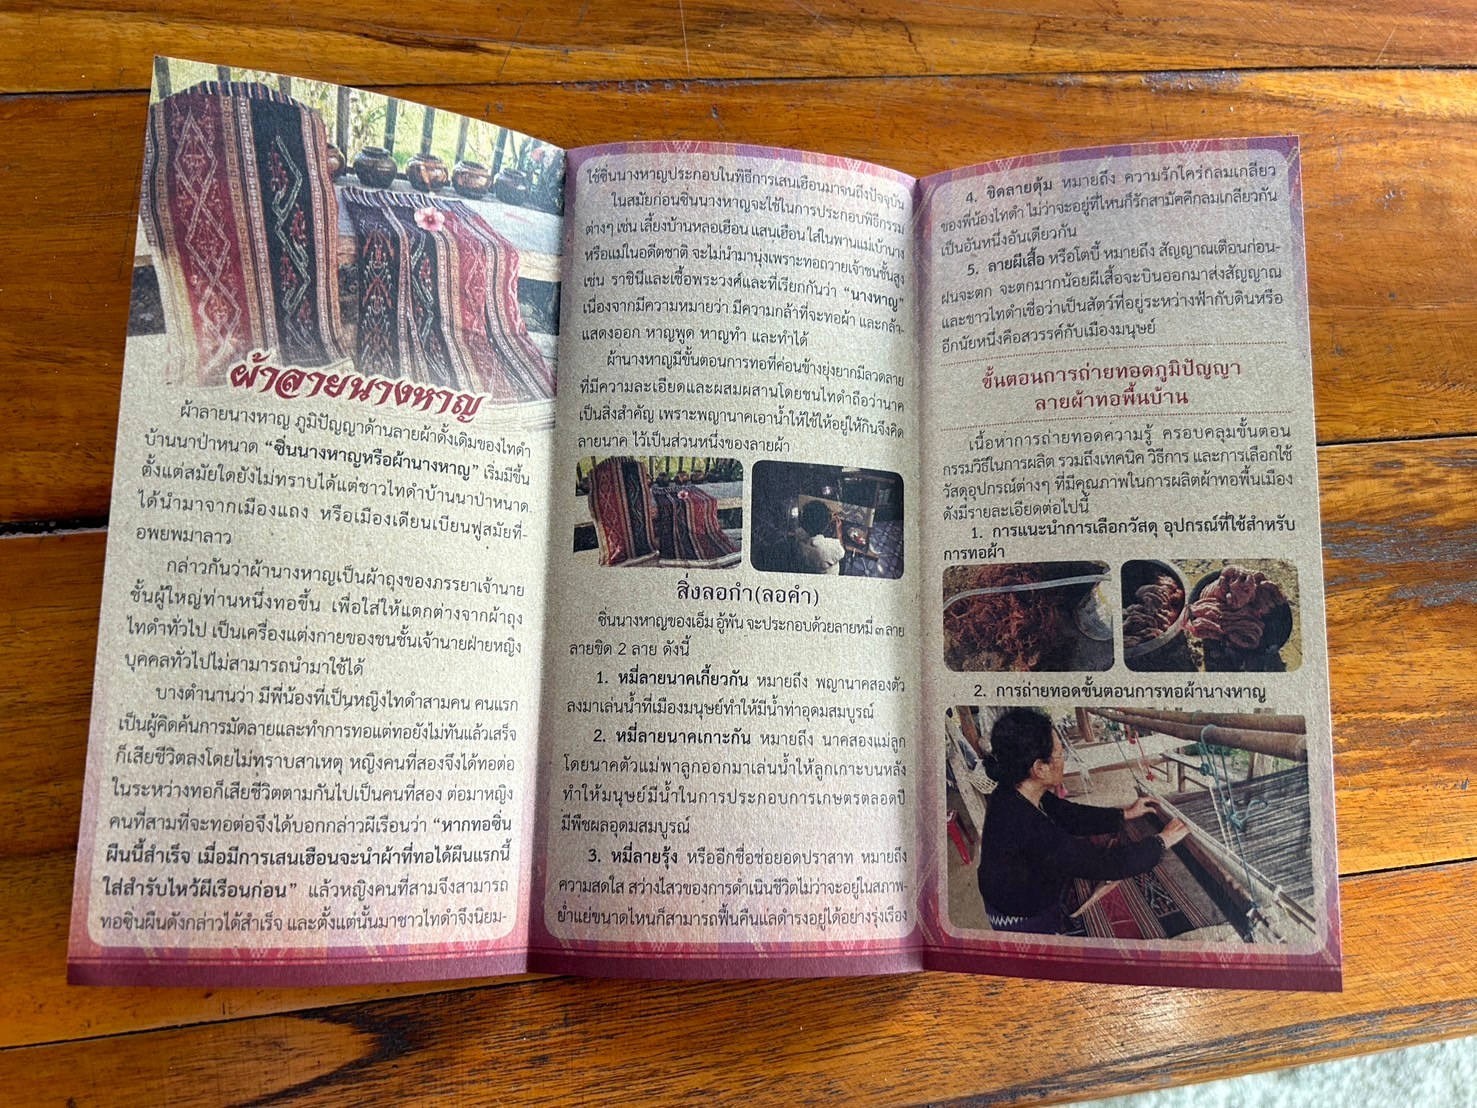 ผ้าลายนางหาญ
ผ้าลายนางหาญ ภูมิปัญญาด้านลายผ้าดั้งเดิมของไทดำ
บ้านนาป่าหนาด “ซิ่นนางหาญหรือผ้านางหาญ” เริ่มมีขึ้น
ตั้งแต่สมัยใดยังไม่ทราบได้แต่ชาวไทดำบ้านนาป่าหนาด
ได้นำมาจากเมืองแถง หรือเมืองเดียนเบียนฟูสมัยที่-
อพยพมาลาว
กล่าวกันว่าผ้านางหาญเป็นผ้าถุงของภรรยาเจ้านาย
ชั้นผู้ใหญ่ท่านหนึ่งทอขึ้น เพื่อใส่ให้แตกต่างจากผ้าถุง
ไทดำทั่วไป เป็นเครื่องแต่งกายของชนชั้นเจ้านายฝ่ายหญิง
บุคคลทั่วไปไม่สามารถนำมาใช้ได้
บางตำนานว่า มีพี่น้องที่เป็นหญิงไทดำสามคน คนแรก
เป็นผู้คิดค้นการมัดลายและทำการทอแต่ทอยังไม่ทันแล้วเสร็จ
ก็เสียชีวิตลงโดยไม่ทราบสาเหตุ หญิงคนที่สองจึงได้ทอต่อ
ในระหว่างทอก็เสียชีวิตตามกันไปเป็นคนที่สอง ต่อมาหญิง
คนที่สามที่จะทอต่อจึงได้บอกกล่าวผีเรือนว่า “หากทอซิ่น
ผืนนี้สำเร็จ เมื่อมีการเสนเฮือนจะนำผ้าที่ทอได้ผืนแรกนี้
ใส่สำรับไหว้ผีเรือนก่อน” แล้วหญิงคนที่สามจึงสามารถ
ทอซิ่นผืนดังกล่าวได้สำเร็จ และตั้งแต่นั้นมาชาวไทดำจึงนิยม-
ใช้ซิ่นนางหาญประกอบในพิธีการเสนเฮือนมาจนถึงปัจจุบัน
ในสมัยก่อนซิ่นนางหาญจะใช้ในการประกอบพิธีกรรม
ต่างๆ เช่น เลี้ยงบ้านหลอเฮือน แสนเฮือน ใส่ในพานแม่เบ้านาง
หรือแม่ในอดีตชาติ จะไม่นำมานุ่งเพราะทอถวายเจ้าชนชั้นสูง
เช่น ราชินีและเชื้อพระวงศ์และที่เรียกกันว่า “นางหาญ”
เนื่องจากมีความหมายว่า มีความกล้าที่จะทอผ้า และกล้า-
แสดงออก หาญพูด หาญทำ และทำได้
ผ้านางหาญมีขั้นตอนการทอที่ค่อนข้างยุ่งยากมีลวดลาย
ที่มีความละเอียดและผสมผสานโดยชนไทดำถือว่านาค
เป็นสิ่งสำคัญ เพราะพญานาคเอาน้ำให้ใช้ให้อยู่ให้กินจึงคิด
ลายนาค ไว้เป็นส่วนหนึ่งของลายผ้า
สิ่งลอกำ(ลอคำ)
ซิ่นนางหาญของเอ็ม อู้พัน จะประกอบด้วยลายหมี่ ๓ ลาย
ลายขิด 2 ลาย ดังนี้
1. หมี่ลายนาคเกี้ยวกัน หมายถึง พญานาคสองตัว
ลงมาเล่นน้ำที่เมืองมนุษย์ทำให้มีน้ำท่าอุดมสมบูรณ์
2. หมี่ลายนาคเกาะกัน หมายถึง นาคสองแม่ลูก
โดยนาคตัวแม่พาลูกออกมาเล่นน้ำให้ลูกเกาะบนหลัง
ทำให้มนุษย์มีน้ำในการประกอบการเกษตรตลอดปี
มีพืชผลอุดมสมบูรณ์
3. หมี่ลายรุ้ง หรืออีกชื่อช่อยอดปราสาท หมายถึง
ความสดใส สว่างไสวของการดำเนินชีวิตไม่ว่าจะอยู่ในสภาพ-
ย่ำแย่ขนาดไหนก็สามารถฟื้นคืนแลดำรงอยู่ได้อย่างรุ่งเรือง
4. ขิดลายตุ้ม หมายถึง ความรักใคร่กลมเกลียว
ของพี่น้องไทดำ ไม่ว่าจะอยู่ที่ไหนก็รักสามัคคีกลมเกลียวกัน
เป็นอันหนึ่งอันเดียวกัน
5. ลายผีเสื้อ หรือโตบี้ หมายถึง สัญญาณเตือนก่อน-
ฝนจะตก จะตกมากน้อยผีเสื้อจะบินออกมาส่งสัญญาณ
และชาวไทดำเชื่อว่าเป็นสัตว์ที่อยู่ระหว่างฟ้ากับดินหรือ
อีกนัยหนึ่งคือสวรรค์กับเมืองมนุษย์
ขั้นตอนการถ่ายทอดภูมิปัญญา
ลายผ้าทอพื้นบ้าน
เนื้อหาการถ่ายทอดความรู้ ครอบคลุมขั้นตอน
กรรมวิธีในการผลิต รวมถึงเทคนิค วิธีการ และการเลือกใช้
วัสดุอุปกรณ์ต่างๆ ที่มีคุณภาพในการผลิตผ้าทอพื้นเมือง
ดังมีรายละเอียดต่อไปนี้
1. การแนะนำการเลือกวัสดุ อุปกรณ์ที่ใช้สำหรับ
การทอผ้า
2. การถ่ายทอดขั้นตอนการทอผ้านางหาญ